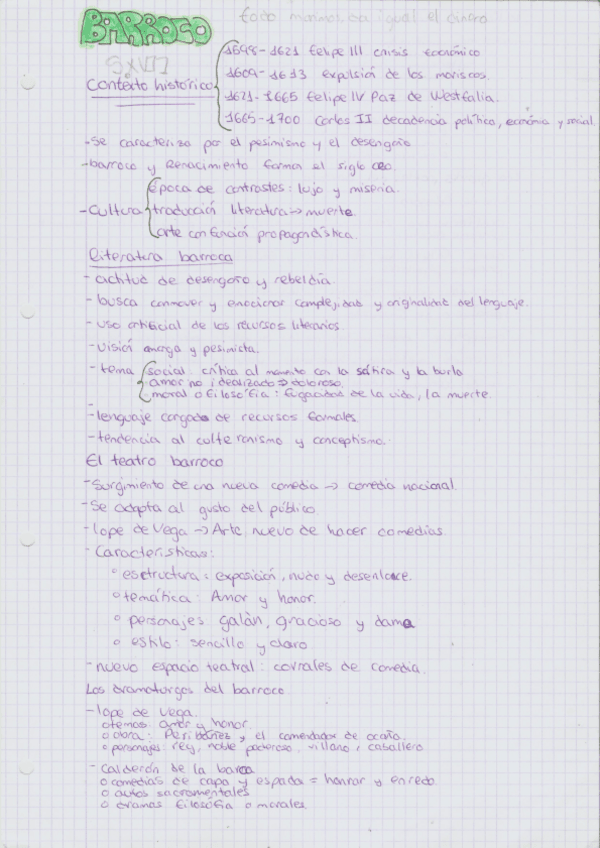 BARROCO
SXVII
Contexto histórico
1698-1621 Felipe III crisis económico
1609-1613 expulsión de los moriscos.
1621-1665 Felipe IV Paz de Westfalia.
1665-1700 Carlos II decadencia política, económia y social.
-Se caracteriza por el pesimismo y el desengaño
-barroco y Renacimiento forman el siglo oro.
-Cultura
época de contrastes: lujo y miseria.
traducción literatura→muerte.
arte con función propagandística.
Literatura barroca
-actitud de desengaño y rebeldía.
-busca conmover y emocionar complejidad y originalidad del lenguaje.
-uso artificial de los recursos literarios
-visión amarga y pesimista.
-tema
social: crítica al momento con la sátira y la burla
amor no idealizado⇒doloroso
moral o filosófia: fugacidad de la vida, la muerte.
-lenguaje cargado de recursos formales.
-tendencia al culteranismo y conceptismo.
El teatro barroco
-Surgimiento de una nueva comedia → comedia nacional.
-Se adapta al gusto del público.
-lope de Vega →Arte nuevo de hacer comedias.
-Características:
° esctructura: exposición, nudo y desenlace.
° temática: Amor y honor.
° personajes galán, gracioso y dama
° estilo: sencillo y claro
-nuevo espacio teatral: corrales de comedia.
Los dramaturgos del barroco
-lope de vega.
o temas: amor y honor
o obra: Peribáñez y el comendador de ocaña.
o personajes: rey, noble poderoso, villano, caballero
-Calderón de la barca
o comedias de capa y espada = honrar y enredo.
o autos sacramentales
o dramas filosófia o morales.